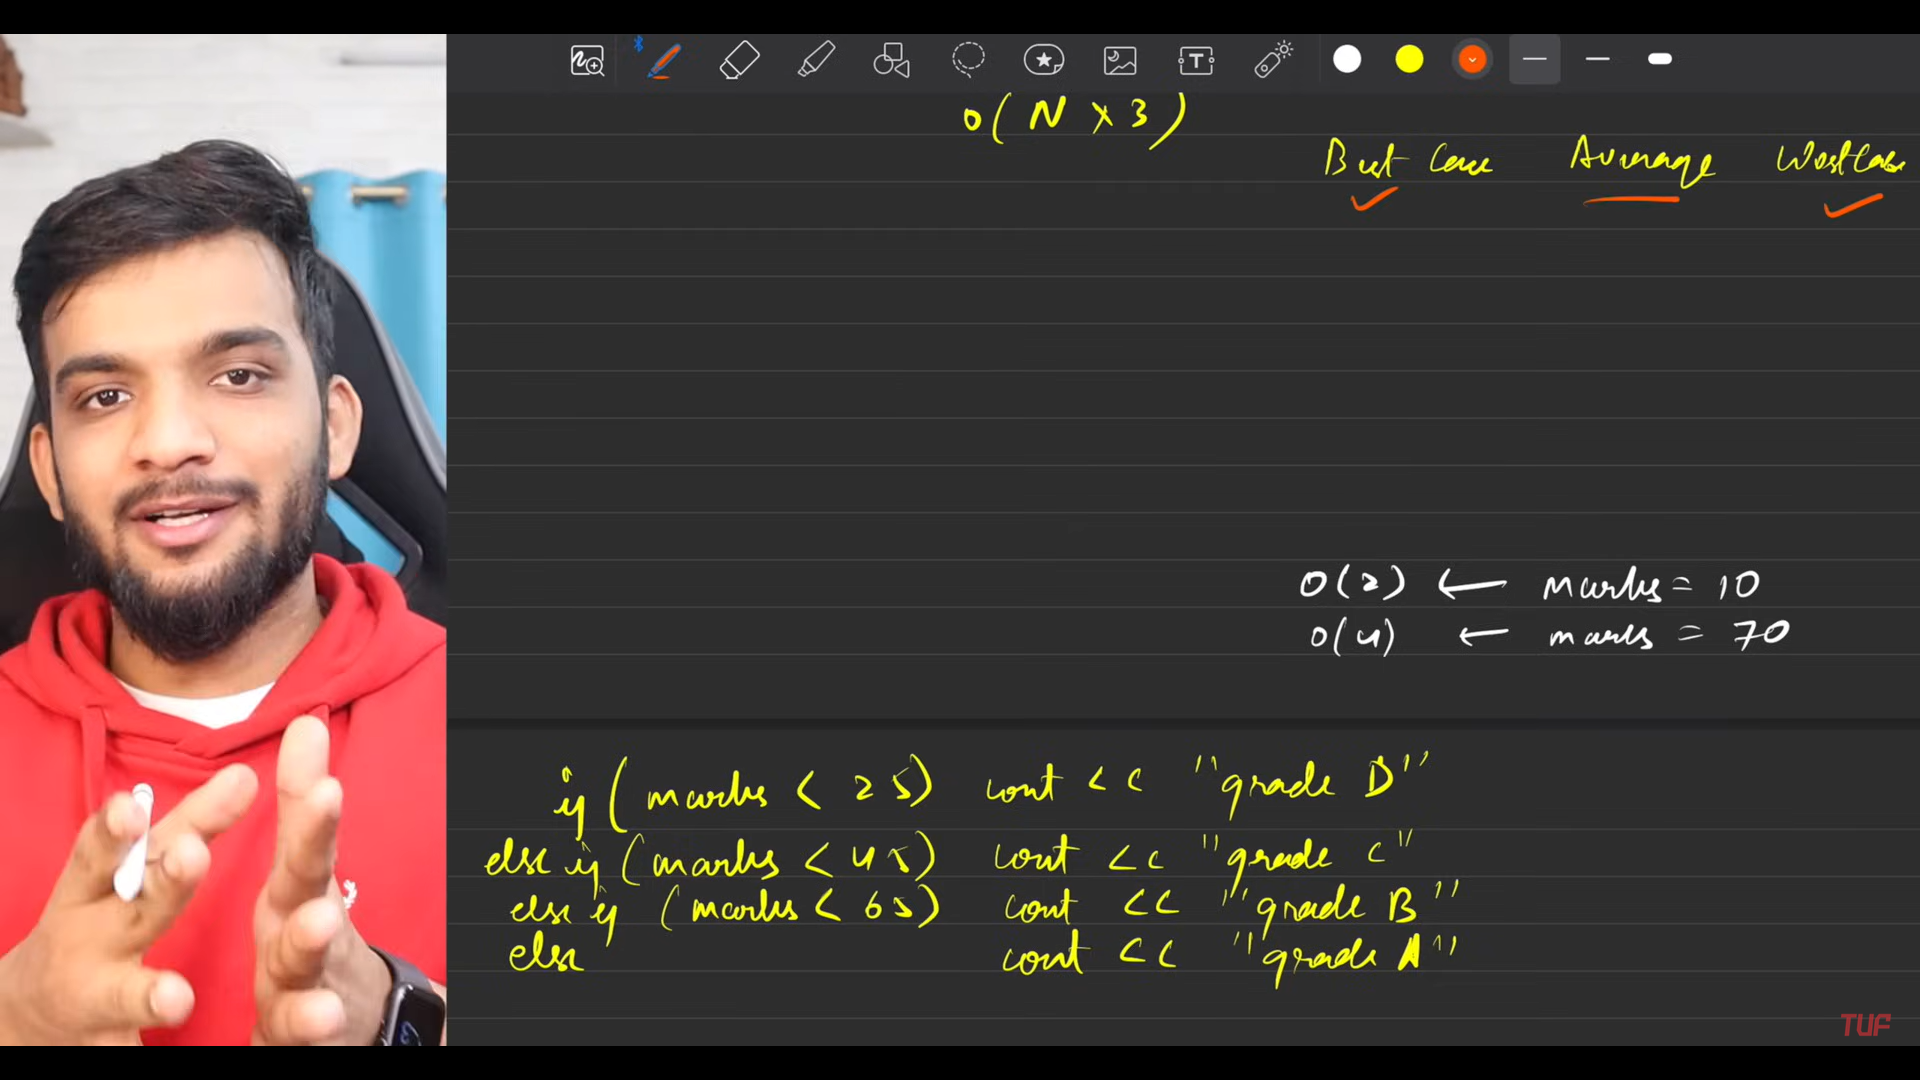 O(N x 3)
Best Case Average Worst Case
O(2) ← marks = 10
O(4) ← marks = 70
if (marks < 25) cout << "grade D"
else if (marks < 45) cout << "grade C"
else if (marks < 65) cout << "grade B"
else cout << "grade A"
TUF